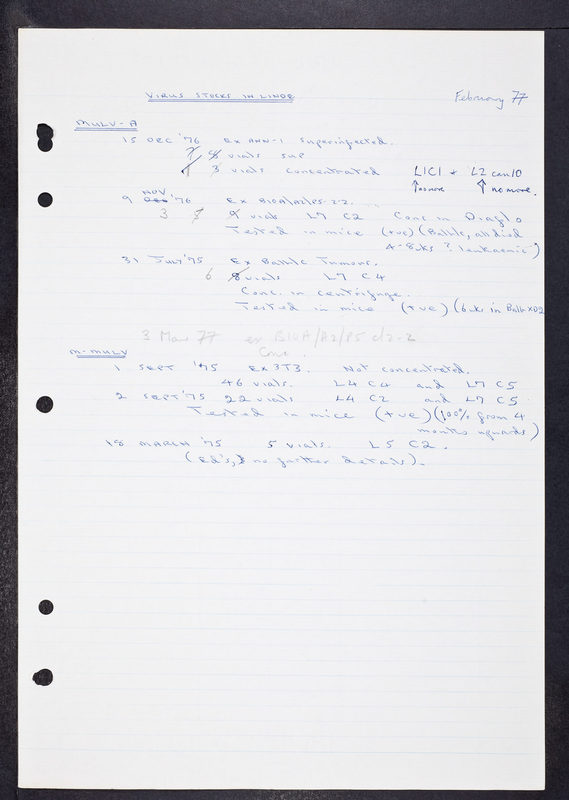 VIRUS STOCKS IN LINDE
February 77
MULV-A
15 DEC '76 Ex ANN-1 superinfected.
7 8 vials sup
3 vials concentrated L1C1 + L2 can 10
↑ no more ↑ no more.
NOV
9 DEC '76 Ex B10A/A2/P5-2-2.
3 9 vials L7 C2 Conc in Diaflo
Tested in mice (+ve) (Balb/c, all died
4-8 wks ? leukaemic)
31 JULY '75 Ex Balb/c Tumours.
6 8 vials L7 C4
Conc. in centrifuge.
Tested in mice (+ve) (6 wks in Balb x D2
3 Mar 77 ex B10A/A2/P5 cl2-2
Conc.
M-MULV
1 SEPT '75 Ex 3T3. Not concentrated.
46 vials. L4 C4 and L7 C5
2 SEPT '75 22 vials L4 C2 and L7 C5
Tested in mice (+ve) (100% from 4
months upwards)
18 MARCH '75 5 vials. L5 C2.
(Ed's, no further details).